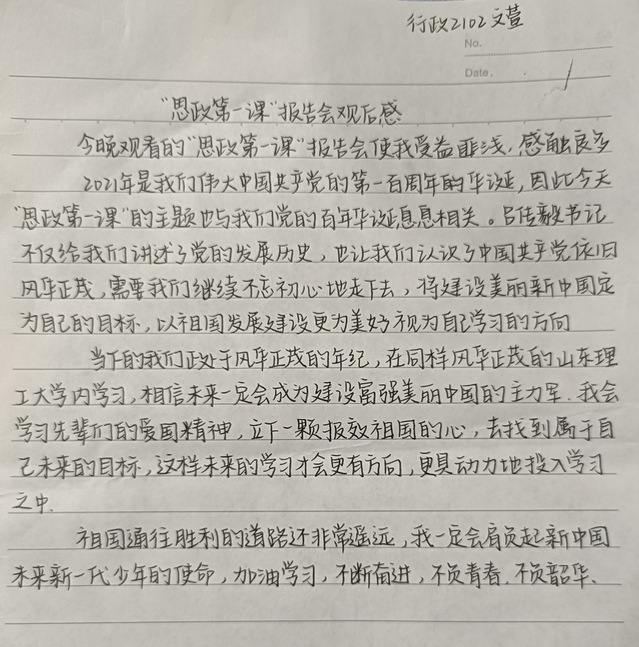 行政2102 文萱
No.
Date.
“思政第一课”报告会观后感
今晚观看的“思政第一课”报告会使我受益匪浅,感触良多
2021年是我们伟大中国共产党的第一百周年的华诞,因此今天
“思政第一课”的主题也与我们党的百年华诞息息相关。吕传毅书记
不仅给我们讲述了党的发展历史,也让我们认识了中国共产党依旧
风华正茂,需要我们继续不忘初心地走下去,将建设美丽新中国定
为自己的目标,以祖国发展建设更为美好视为自己学习的方向
当下的我们正处于风华正茂的年纪,在同样风华正茂的山东理
工大学内学习,相信未来一定会成为建设富强美丽中国的主力军.我会
学习先辈们的爱国精神,立下一颗报效祖国的心,去找到属于自
己未来的目标,这样未来的学习才会更有方向,更具动力地投入学习
之中.
祖国通往胜利的道路还非常遥远,我一定会肩负起新中国
未来新一代少年的使命,加油学习,不断奋进,不负青春.不负韶华.